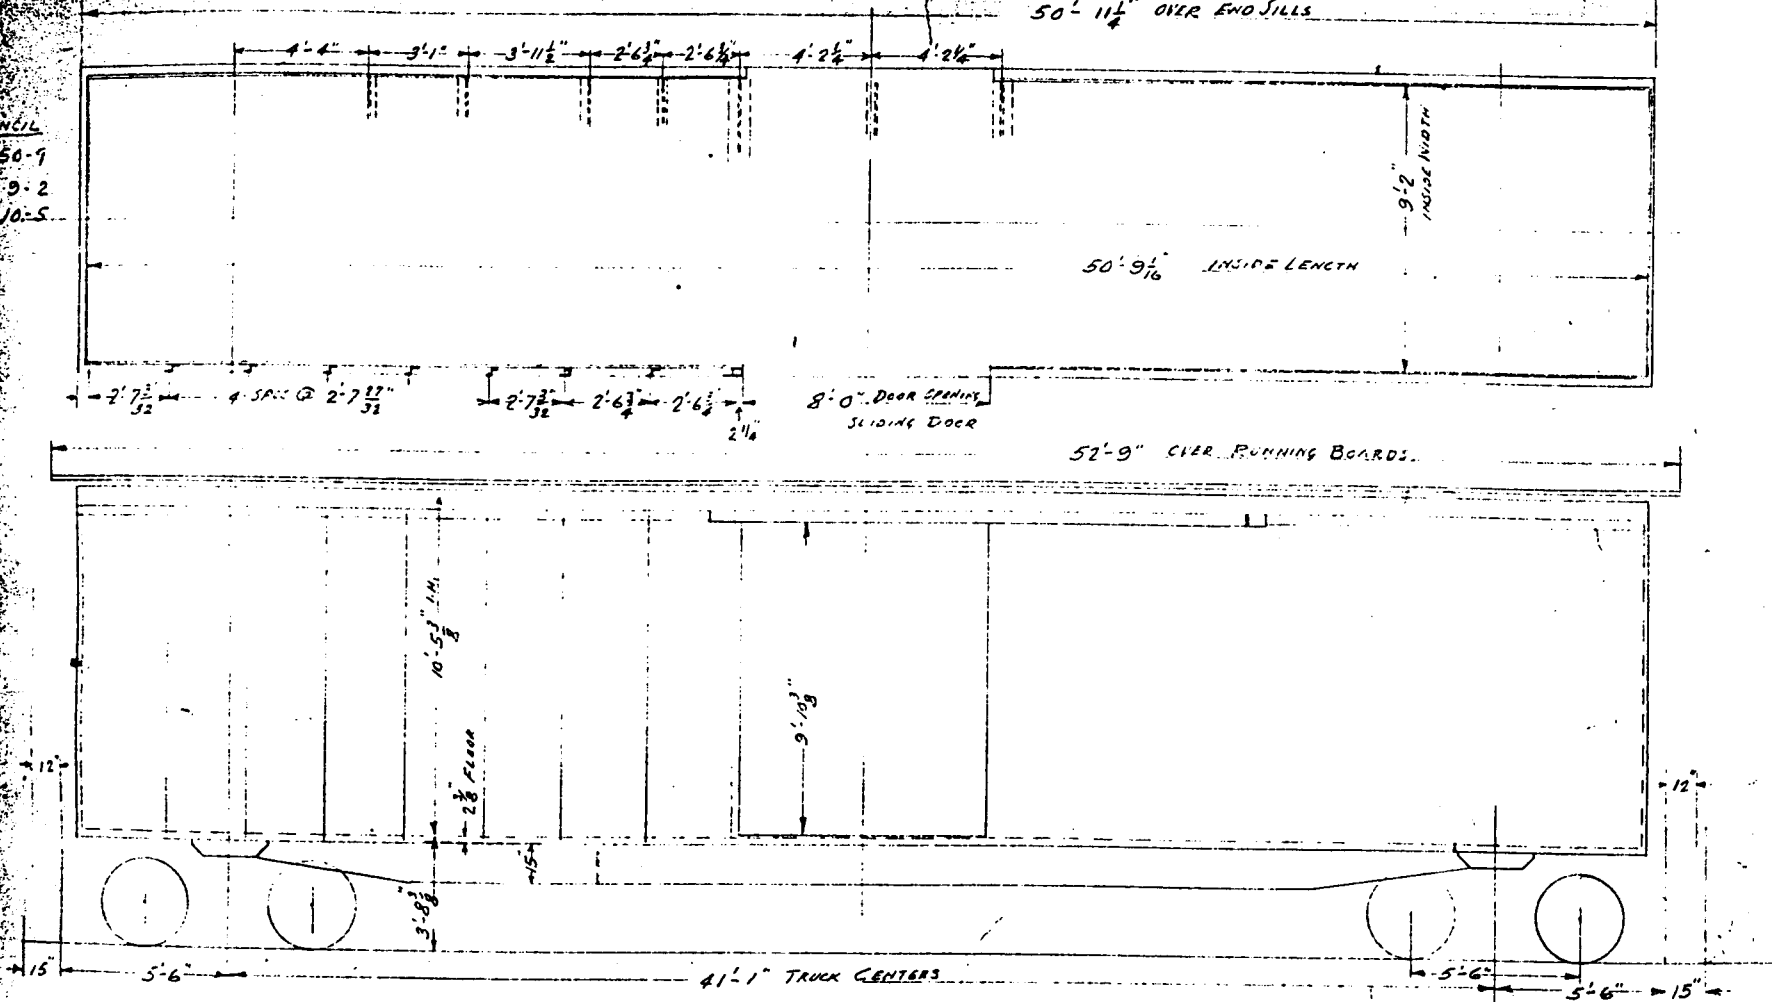 50'-11 1/4" OVER END SILLS
4'-4" 3'-1" 3'-11 1/2" 2'-6 3/4" 2'-6 3/4" 4'-2 1/4" 4'-2 1/4"
50-9
9-2
10-5
9'-2"
INSIDE WIDTH
50'-9 1/16" INSIDE LENGTH
2'-7 3/32" 4 SPCS @ 2'-7 27/32" 2'-7 3/32" 2'-6 3/4" 2'-6 3/4" 8'-0" DOOR OPENING
2 1/4"
SLIDING DOOR
52'-9" OVER RUNNING BOARDS.
10'-5 3/8" I.H.
9'-10 3/8"
2 3/8" FLOOR
12" 12"
15"
3'-8 3/8"
15" 5'-6" 41'-1" TRUCK CENTERS 5'-6"
5'-6" 15"